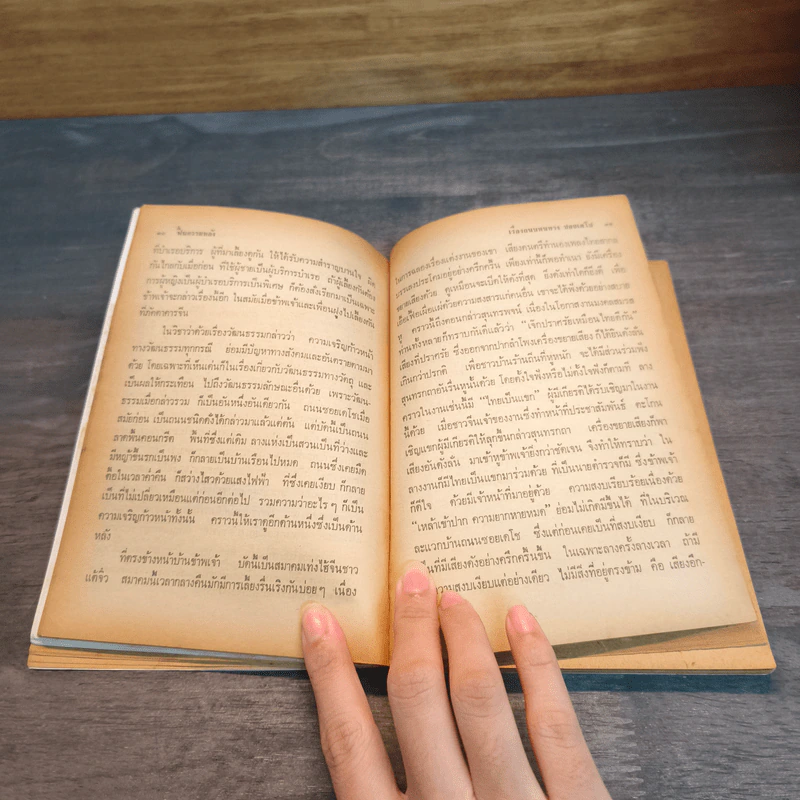 ๑๐ ฟื้นความหลัง
ที่บำเรอบริการ ผู้ที่มาเลี้ยงดูกัน ให้ได้รับความสำราญบานใจ ผิด
กันไกลกับเมื่อก่อน ที่ใช้ผู้ชายเป็นผู้บริการบำเรอ ถ้าผู้เลี้ยงกันต้อง
การผู้หญิงเป็นผู้บำเรอบริการเป็นพิเศษ ก็ต้องสั่งเรียกมาเป็นเฉพาะ
ข้าพเจ้าจะกล่าวเรื่องนี้อีก ในสมัยเมื่อข้าพเจ้าและเพื่อนฝูงไปเลี้ยงกัน
ที่ภัตตาคารจีน
ในวิชาว่าด้วยเรื่องวัฒนธรรมกล่าวว่า ความเจริญก้าวหน้า
ทางวัฒนธรรมทุกกรณี ย่อมมีปัญหาทางสังคมและอันตรายตามมา
ด้วย โดยเฉพาะที่เห็นเด่นก็ในเรื่องเกี่ยวกับวัฒนธรรมทางวัตถุ และ
เป็นผลให้กระเทือน ไปถึงวัฒนธรรมลักษณะอื่นด้วย เพราะวัฒน-
ธรรมเมื่อกล่าวรวม ก็เป็นอันหนึ่งอันเดียวกัน ถนนซอยเดโชเมื่อ
สมัยก่อน เป็นถนนชนิดดังได้กล่าวมาแล้วแต่ต้น แต่บัดนี้เป็นถนน
ลาดพื้นคอนกรีต พื้นที่ซึ่งแต่เดิม ลางแห่งเป็นสวนเป็นที่ว่างและ
มีหญ้าขึ้นรกเป็นพง ก็กลายเป็นบ้านเรือนไปหมด ถนนซึ่งเคยมืด
ตื๋อในเวลาค่ำคืน ก็สว่างไสวด้วยแสงไฟฟ้า ที่ซึ่งเคยเงียบ ก็กลาย
เป็นที่ไม่เปลี่ยวเหมือนแต่ก่อนอีกต่อไป รวมความว่าอะไรๆ ก็เป็น
ความเจริญก้าวหน้าทั้งนั้น คราวนี้ให้เราดูอีกด้านหนึ่งซึ่งเป็นด้าน
หลัง
ที่ตรงข้างหน้าบ้านข้าพเจ้า บัดนี้เป็นสมาคมเท่งไฮ้จีนชาว
แต้จิ๋ว สมาคมนี้เวลากลางคืนมักมีการเลี้ยงรื่นเริงกันบ่อยๆ เนื่อง
ซอยเดโช ๑๑
ในการฉลองเรื่องแต่งงานของเขา เสียงดนตรีทำนองเพลงไทยสากล
บรรเลงประโคมอยู่อย่างครึกครื้น เพียงเท่านี้ก็พอทำเนา ยังมีเครื่อง
ขยายเสียงด้วย ดูเหมือนจะเปิดให้ดังที่สุด จึงดังเท่าได้ก็ยิ่งดี เพื่อ
เอื้อเฟื้อเผื่อแผ่ด้วยความสงสารแก่คนอื่น เขาจะได้พึงตัวอย่างสบาย
หู คราวนี้ถึงคนกล่าวสุนทรพจน์ เนื่องในโอกาสงานมงคลสมรส
ท่านทั้งหลายก็ทราบกันดีแล้วว่า “เจ๊กปราศรัยเหมือนไทยตีกัน”
เสียงที่ปราศรัย ซึ่งออกจากปากลำโพงเครื่องขยายเสียง ก็ได้ยินดังลั่น
เกินกว่าปรกติ เพื่อชาวบ้านร้านถิ่นที่หูหนัก จะได้มีส่วนร่วมฟัง
สุนทรกถาอันรื่นหูนั้นด้วย โดยตั้งใจฟังหรือไม่ตั้งใจฟังก็ตามที ลาง
คราวในงานเช่นนี้มี “ไทยเป็นแขก” ผู้มีเกียรติได้รับเชิญมาในงาน
นี้ด้วย เมื่อชาวจีนเจ้าของงานซึ่งทำหน้าที่ประชาสัมพันธ์ ตะโกน
เชิญแขกผู้มีเกียรติให้ลุกขึ้นกล่าวสุนทรกถา เครื่องขยายเสียงก็พา
เสียงอันดังลั่น มาเข้าหูข้าพเจ้ายิ่งกว่าชัดเจน จึงทำให้ทราบว่า ใน
ลางงานก็มีไทยเป็นแขกมาร่วมด้วย ที่เป็นนายตำรวจก็มี ซึ่งข้าพเจ้า
ก็ดีใจ ด้วยมีเจ้าหน้าที่มาอยู่ด้วย ความสงบเรียบร้อยเนื่องด้วย
“เหล้าเข้าปาก ความยากหายหมด” ย่อมไม่เกิดมีขึ้นได้ ที่ในบริเวณ
ละแวกบ้านถนนซอยเดโช ซึ่งแต่ก่อนเคยเป็นที่สงบเงียบ ก็กลาย
ที่มีเสียงดังอย่างครึกครื้นขึ้น ในเฉพาะลางครั้งลางเวลา ถ้ามี
ความสงบเงียบแต่อย่างเดียว ไม่มีสิ่งที่อยู่ตรงข้าม คือ เสียงอึก-